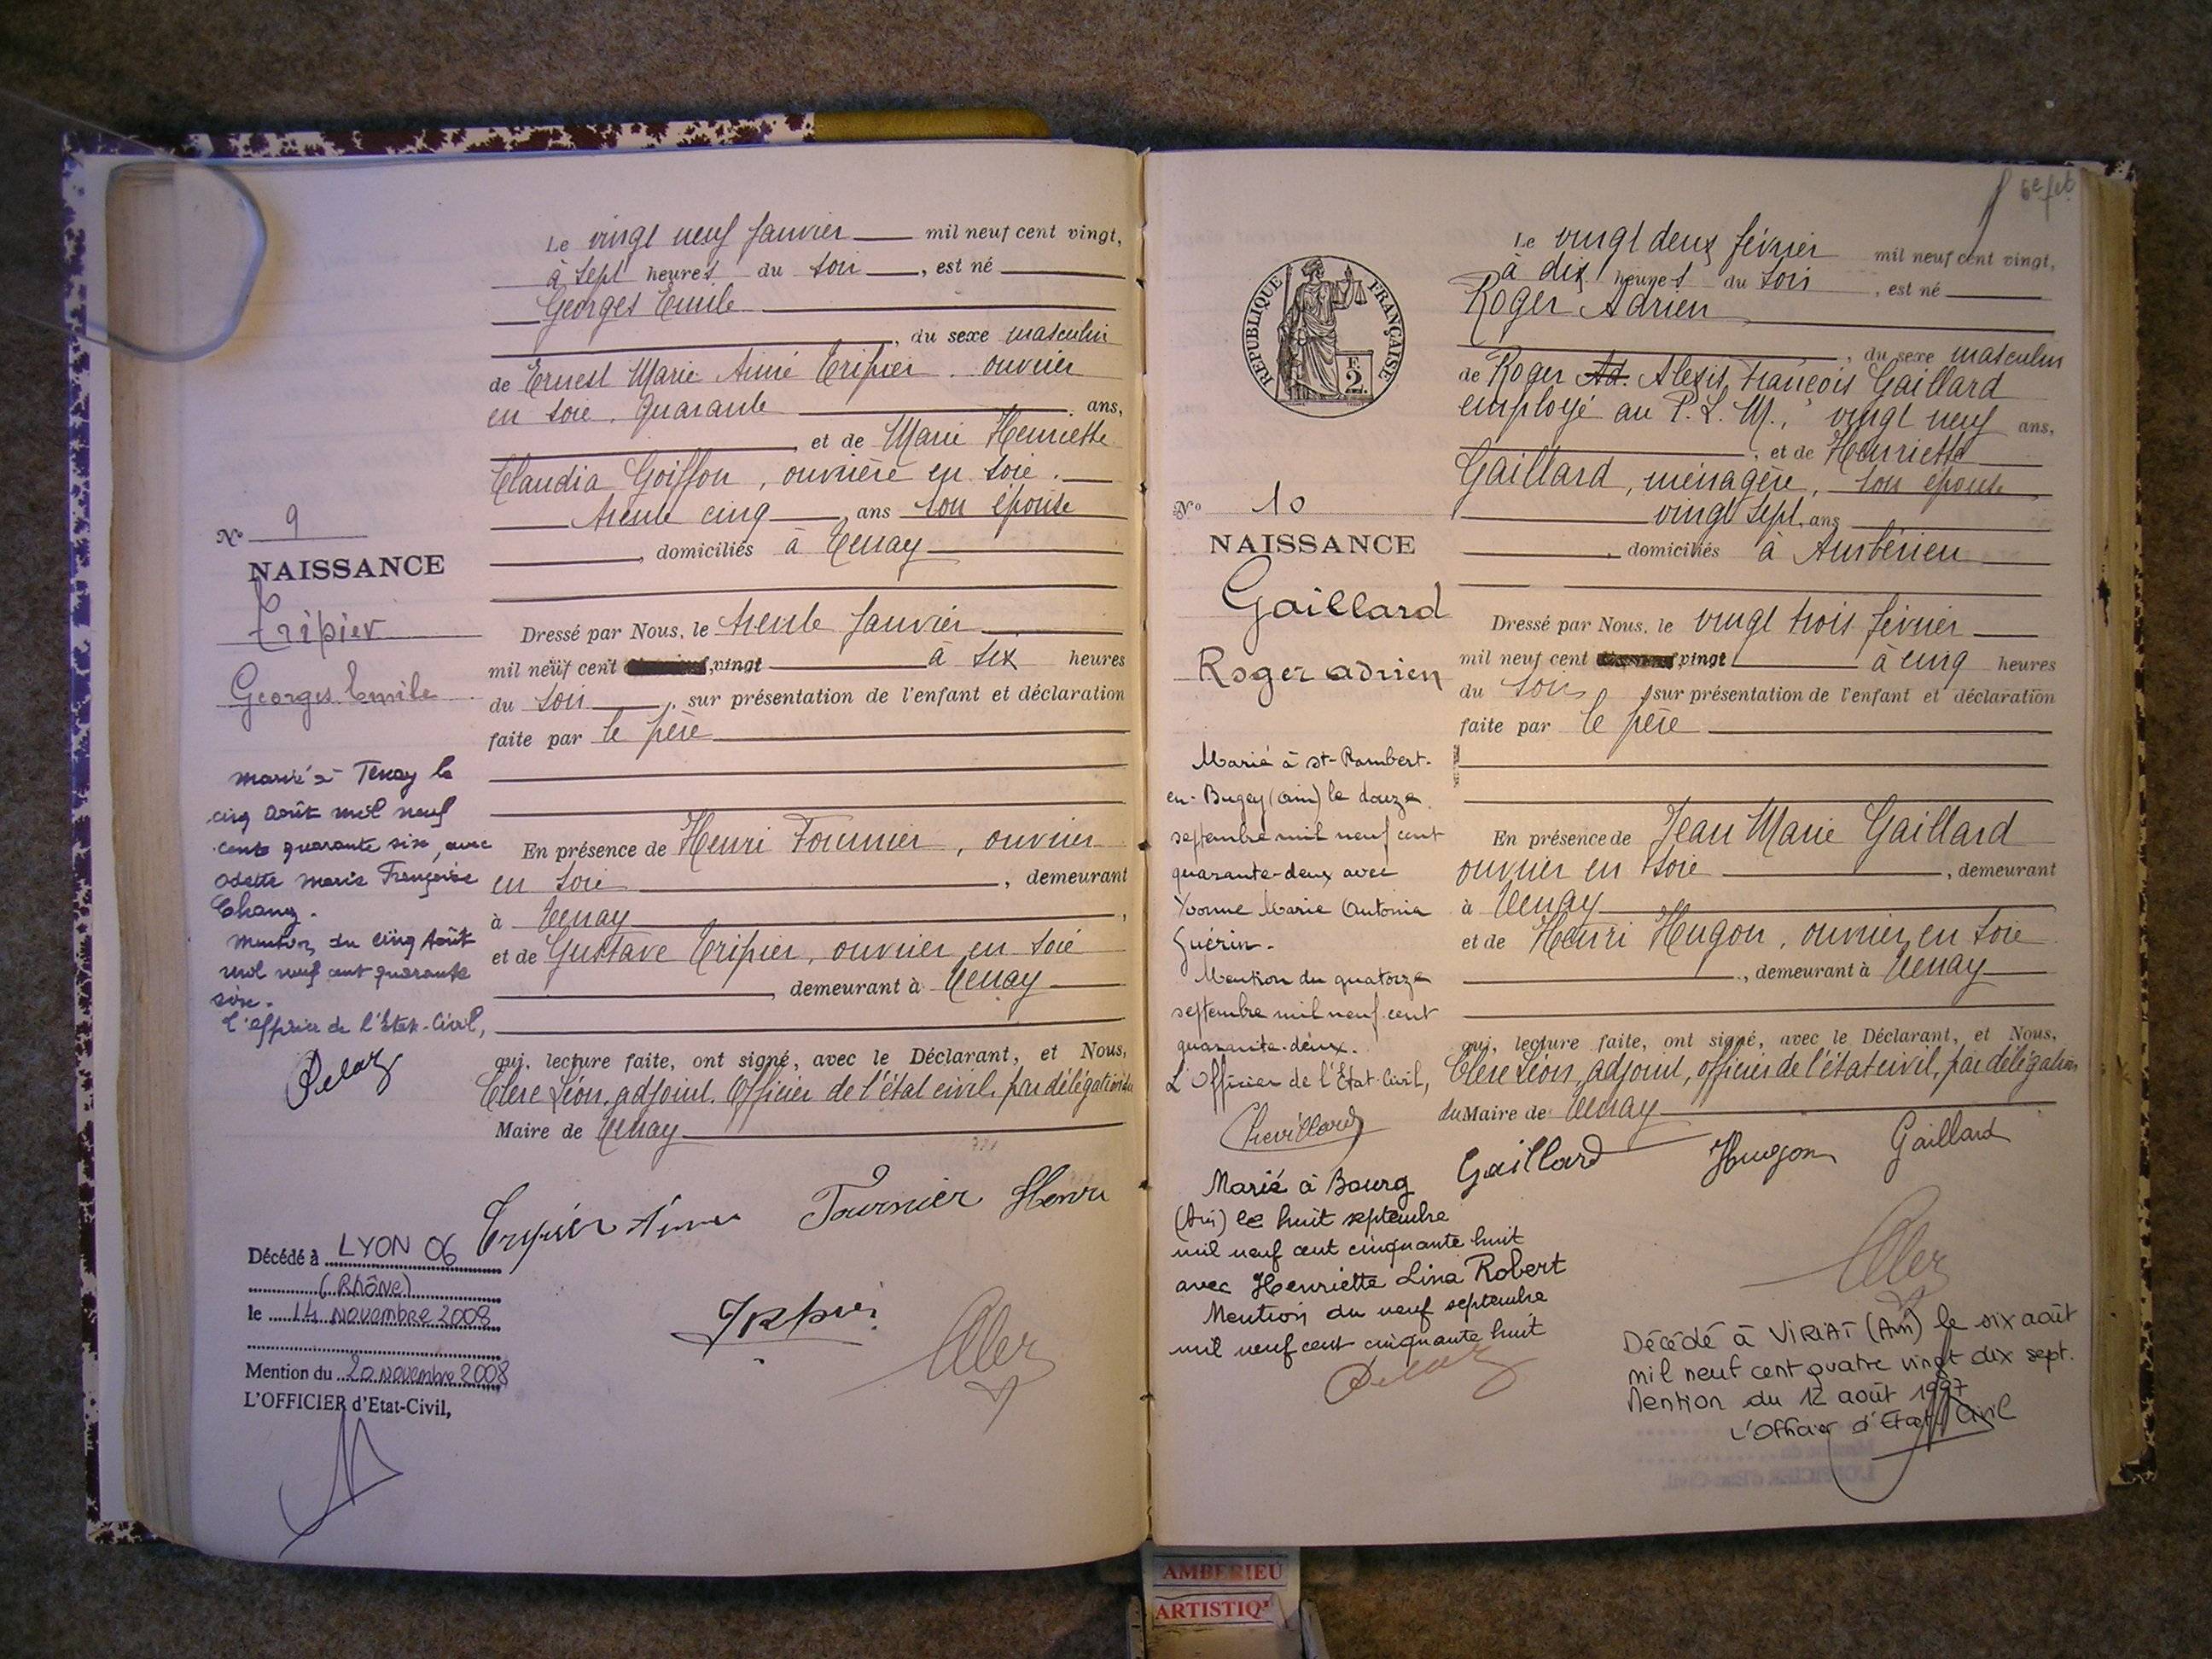 Le vingt neuf Janvier mil neuf cent vingt,
à sept heures du soir, est né
Georges Emile
, du sexe masculin
de Ernest Marie Aimé Tripier. ouvrier
en soie. quarante ans,
et de Marie Henriette
Claudia Goiffon, ouvrière en soie.
trente cinq ans son épouse
, domiciliés à Tenay
No 9
NAISSANCE
Tripier
Georges Emile
Dressé par Nous, le trente Janvier
mil neuf cent vingt à six heures
du soir, sur présentation de l'enfant et déclaration
faite par le père
marié à Tenay le
cinq Août mil neuf
cent quarante six, avec
Odette Marie Françoise
Mention du cinq Août
mil neuf cent quarante
six.
L'officier de l'Etat-Civil,
En présence de Henri Fournier, ouvrier
en soie, demeurant
à Tenay,
et de Gustave Tripier, ouvrier en soie
, demeurant à Tenay
qui, lecture faite, ont signé, avec le Déclarant, et Nous,
Clerc Léon, adjoint. Officier de l'état civil, par délégation du
Maire de Tenay
Tripier Aimé Fournier Henri
Décédé à LYON 06
(Rhône)
le 14 Novembre 2008
Mention du 20 Novembre 2008
L'OFFICIER d'Etat-Civil,
6e
REPUBLIQUE FRANÇAISE
F.
2
Le vingt deux février mil neuf cent vingt,
à dix heures du soir, est né
Roger Adrien
, du sexe masculin
de Roger Ad. Alexis François Gaillard
employé au P. L. M., vingt neuf ans,
, et de Henriette
Gaillard, ménagère, son épouse
vingt sept, ans
, domiciliés à Ambérieu
No 10
NAISSANCE
Gaillard
Roger Adrien
Dressé par Nous, le vingt trois février
mil neuf cent vingt à cinq heures
du soir, sur présentation de l'enfant et déclaration
faite par le père
Marié à St-Rambert-
en-Bugey (Ain) le douze
septembre mil neuf cent
quarante-deux avec
Yvonne Marie Antonia
Guérin.
Mention du quatorze
septembre mil neuf cent
quarante-deux.
L'Officier de l'Etat-Civil,
Chevillard
En présence de Jean Marie Gaillard
ouvrier en soie, demeurant
à Tenay
et de Henri Hugon, ouvrier en soie
, demeurant à Tenay
qui, lecture faite, ont signé, avec le Déclarant, et Nous,
Clerc Léon, adjoint, officier de l'état civil, par délégation
du Maire de Tenay
Gaillard Hugon Gaillard
Marié à Bourg
(Ain) le huit septembre
mil neuf cent cinquante huit
avec Henriette Lina Robert
Mention du neuf septembre
mil neuf cent cinquante huit
Décédé à VIRIAT (Ain) le six août
mil neuf cent quatre vingt dix sept.
Mention du 12 août 1997
L'Officier d'Etat Civil
AMBERIEU
ARTISTIQ